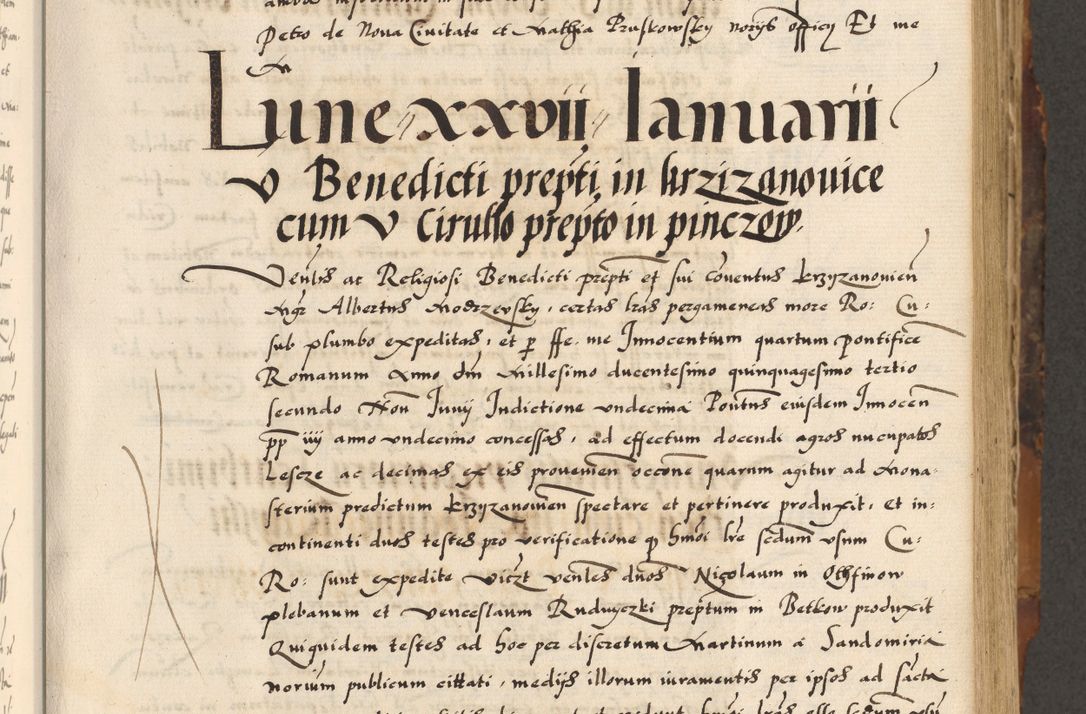 Petro de Nova Civitate et Mathia Pruskowsky norijs officij Et me
M
Lune xxvii Ianuarii
V Benedicti prepti in krzizanouice
cum V Cirullo prepto in pinczow.
Venlis ac Religiosi Benedicti prepti et sui conventus krzyzanovien
Mgr Albertus Modrzevsky, certas lras pergameneas more Ro: Cu:
sub plumbo expeditas, et p fe. me Innocentium quartum pontifice
Romanum Anno dni Millesimo ducentesimo quinquagesimo tertio
secundo Non Junij Indictione undecima Pontus eiusdem Innocen
pp iiij anno undecimo concessas, ad effectum docendi agros nucupatos
Lescze ac decimas ex eis provenien occone quarum agitur ad Mona
sterium predictum krzyzanowien spectare et pertinere produxit, et in:
continenti duos testes pro verificatione q hmoi lre scdum usum Cu:
Ro: sunt expedite viczt venles dnos Nicolaum in Othfinow
plebanum et Venceslaum Rudnyczki preptum in Betkow produxit
Quiquidem testes ad hoc per discretum Martinum a Sandomiria
norium publicum cittati, medijs illorum iuramentis per ipsos ad sacta